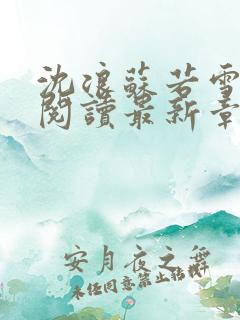 沈浪蘇若雪
閱讀最新章
安月夜之舞
未经同意禁止转载